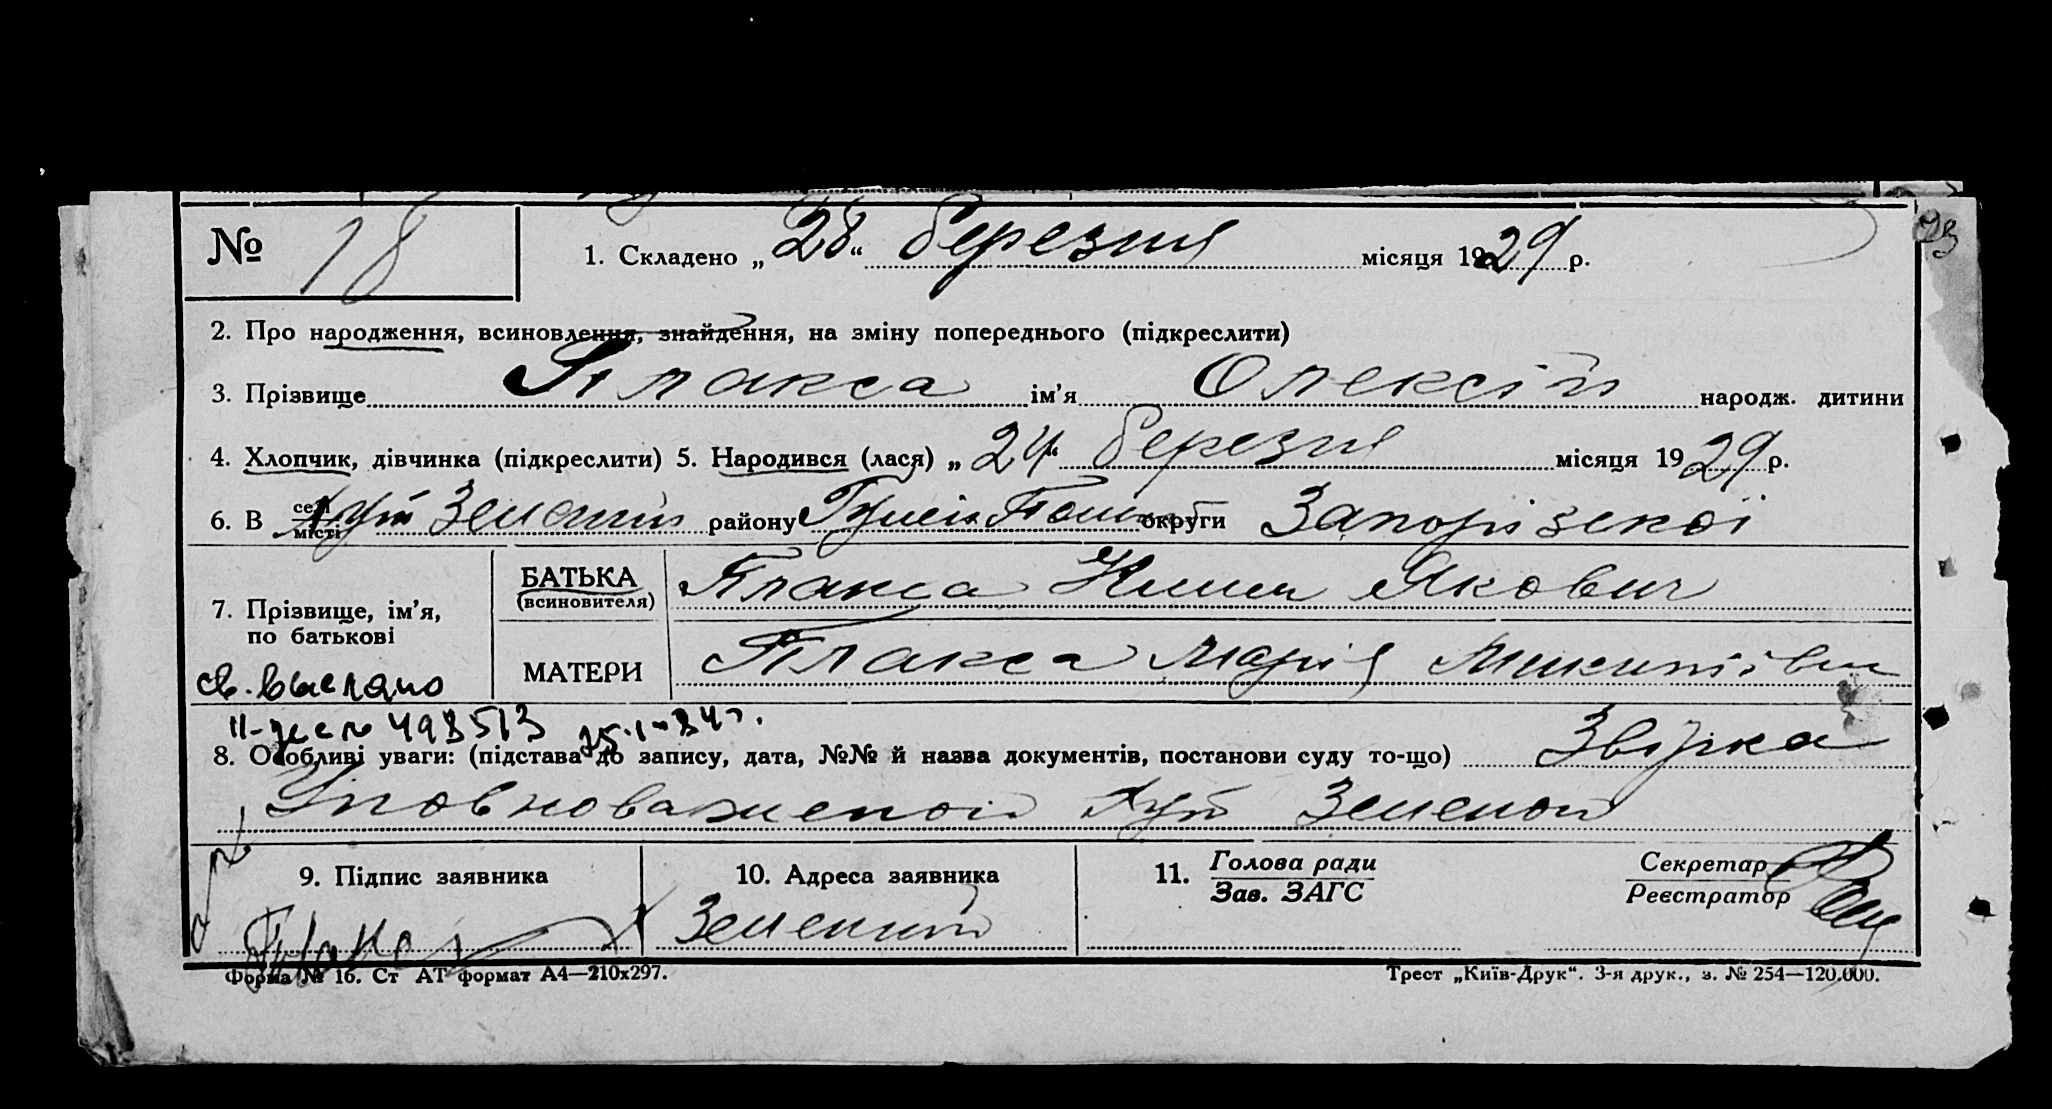 № 18
1. Складено „28“ березня місяця 1929 р.
93
2. Про народження, всиновлення, знайдення, на зміну попереднього (підкреслити)
3. Прізвище Плакса ім'я Олексій народж. дитини
4. Хлопчик, дівчинка (підкреслити) 5. Народився (лася) „24“ березня місяця 1929 р.
6. В селі місті хут Зелений району Гуляй Пільс округи Запорізької
7. Прізвище, ім'я, по батькові
БАТЬКА (всиновителя) Плакса Якович
МАТЕРИ Плакса Марія Микитівна
св. выслано
493513
8. Особливі уваги: (підстава до запису, дата, №№ й назва документів, постанови суду то-що) Звірка
Уповноваженой хут Зеленой
9. Підпис заявника
10. Адреса заявника
Зелений
11. Голова ради
Зав. ЗАГС
Секретар
Реєстратор
Форма № 16. Ст АТ формат А4—210х297.
Трест „Київ-Друк“. 3-я друк., з. № 254—120.000.